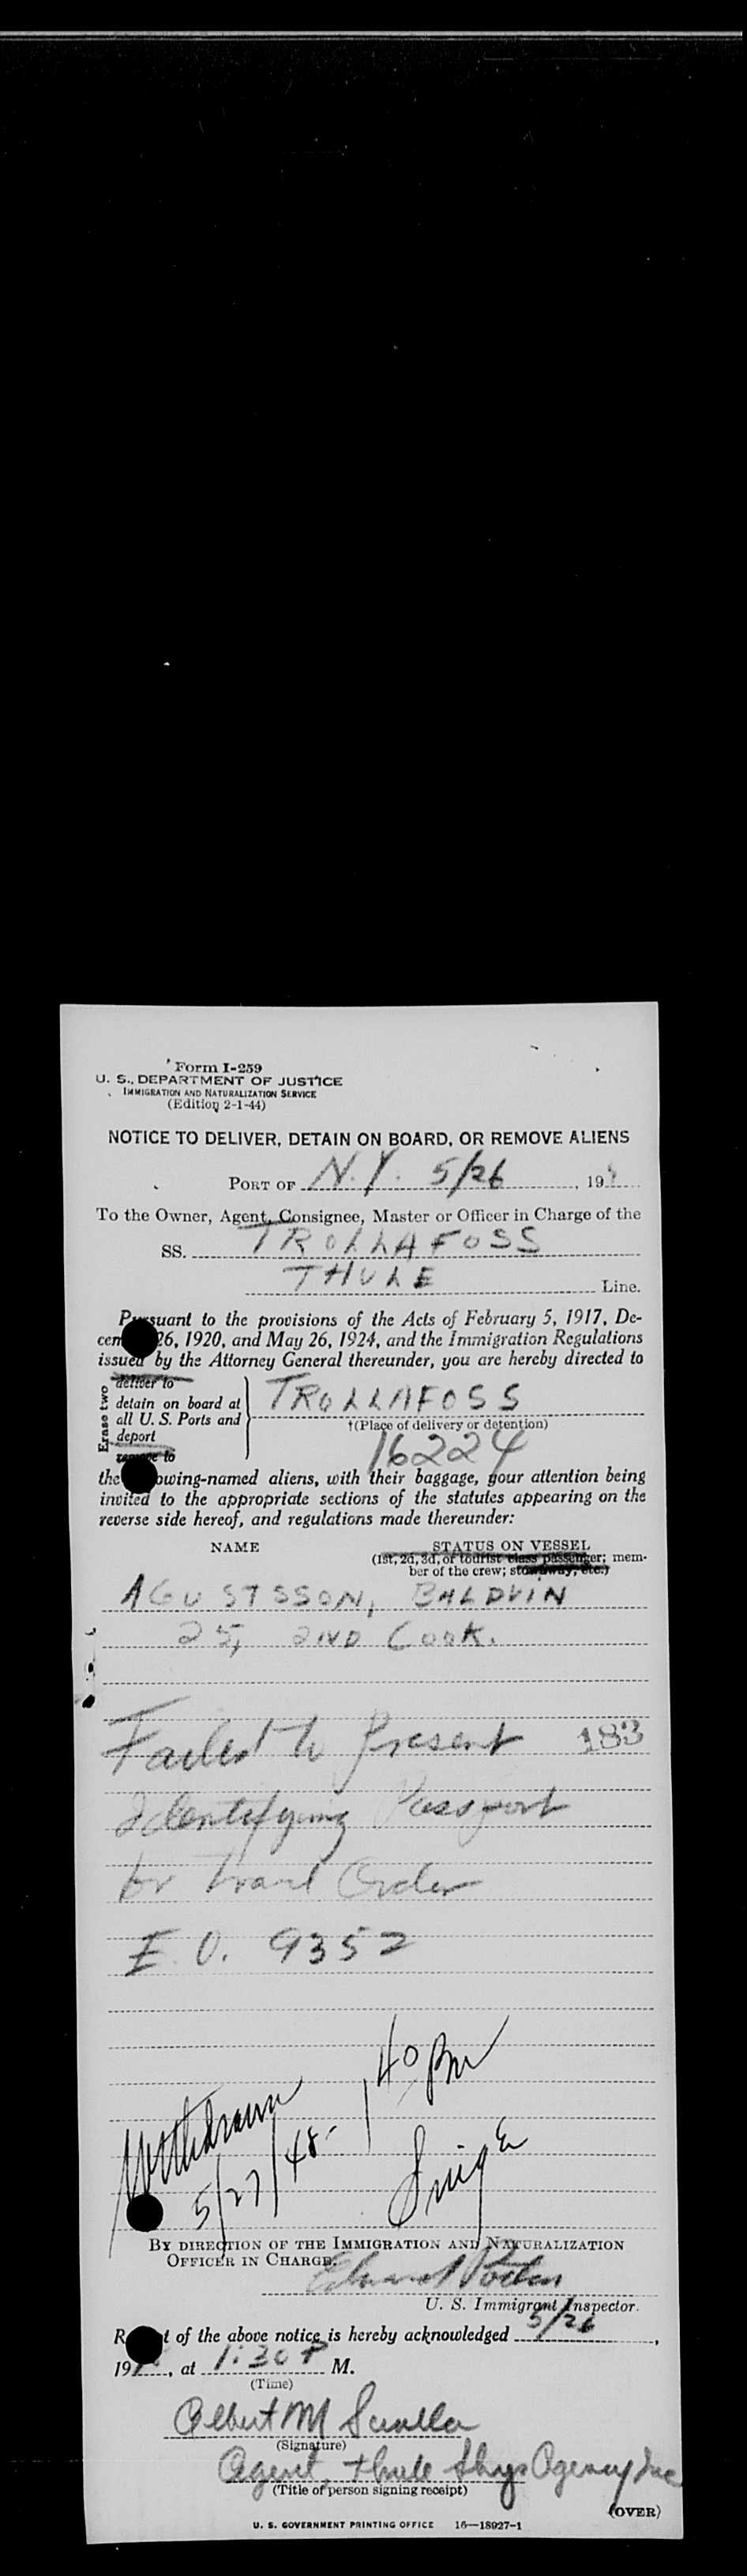 Form I-259
U. S. DEPARTMENT OF JUSTICE
IMMIGRATION AND NATURALIZATION SERVICE
(Edition 2-1-44)
NOTICE TO DELIVER, DETAIN ON BOARD, OR REMOVE ALIENS
PORT OF N.Y. 5/26, 194
To the Owner, Agent, Consignee, Master or Officer in Charge of the
SS. TROLLAFOSS
THULE Line.
Pursuant to the provisions of the Acts of February 5, 1917, De-
cem 26, 1920, and May 26, 1924, and the Immigration Regulations
issued by the Attorney General thereunder, you are hereby directed to
Erase two
deliver to
detain on board at
all U. S. Ports and
deport
remove to
TROLLAFOSS
†(Place of delivery or detention)
16224
the owing-named aliens, with their baggage, your attention being
invited to the appropriate sections of the statutes appearing on the
reverse side hereof, and regulations made thereunder:
NAME STATUS ON VESSEL
(1st, 2d, 3d, or tourist class passenger; mem-
ber of the crew; stowaway, etc.)
AGUSTSSON, BALDVIN
25, 2ND COOK.
Failed to Present 183
Identifying Passport
or Travel Order
E.O. 9352
Withdrawn
5/27/48- 140 PM
BY DIRECTION OF THE IMMIGRATION AND NATURALIZATION
OFFICER IN CHARGE.
Edward
U. S. Immigrant Inspector.
R t of the above notice is hereby acknowledged 5/26,
19, at 1:30 P M.
(Time)
Albert M
(Signature)
Agent, Thule Shps Agency Inc
(Title of person signing receipt)
(OVER)
U. S. GOVERNMENT PRINTING OFFICE 16—18927-1